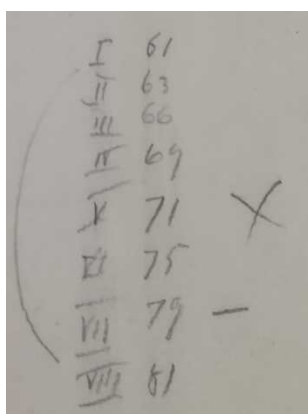 I 61
II 63
III 66
IV 69
V 71
VI 75
VII 79 –
VIII 81
X